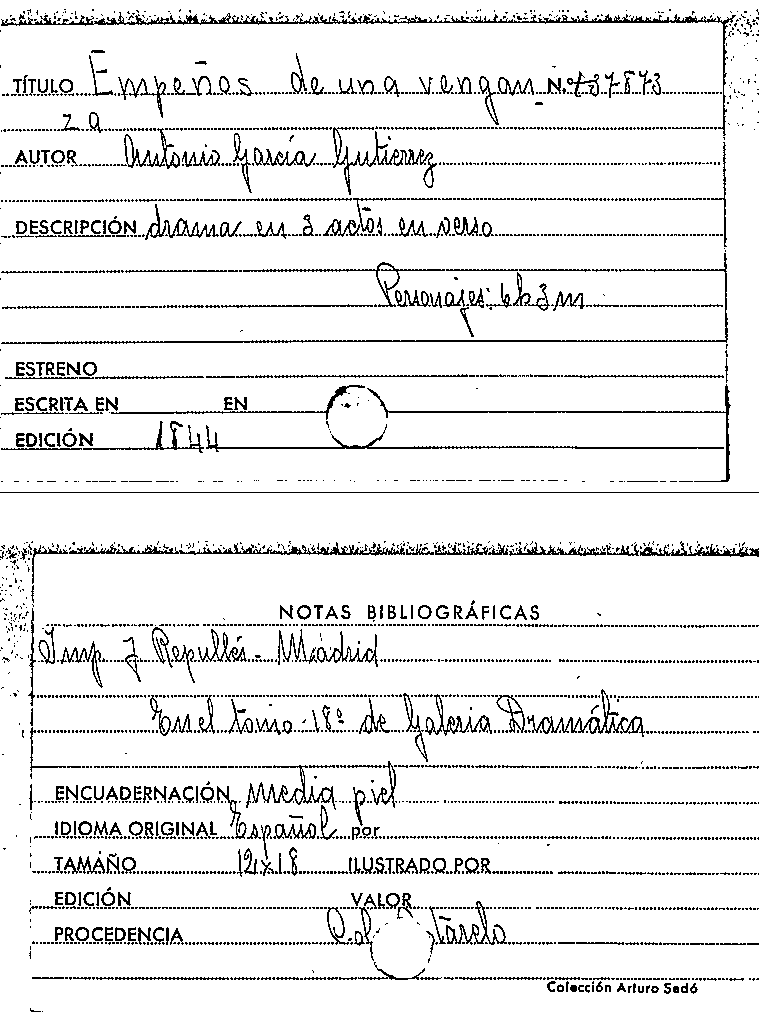 TÍTULO Empeños de una vengan N.º 37873
za
AUTOR Antonio García Gutierrez
DESCRIPCIÓN drama en 3 actos en verso
Personajes: 6h 3m
ESTRENO
ESCRITA EN EN
EDICIÓN 1844
NOTAS BIBLIOGRÁFICAS
Imp J Repullés - Madrid
En el tomo - 18º de Galeria Dramática
ENCUADERNACIÓN Media piel
IDIOMA ORIGINAL Español por
TAMAÑO 12x18 ILUSTRADO POR
EDICIÓN VALOR
PROCEDENCIA Col tarelo
Colección Arturo Sedó